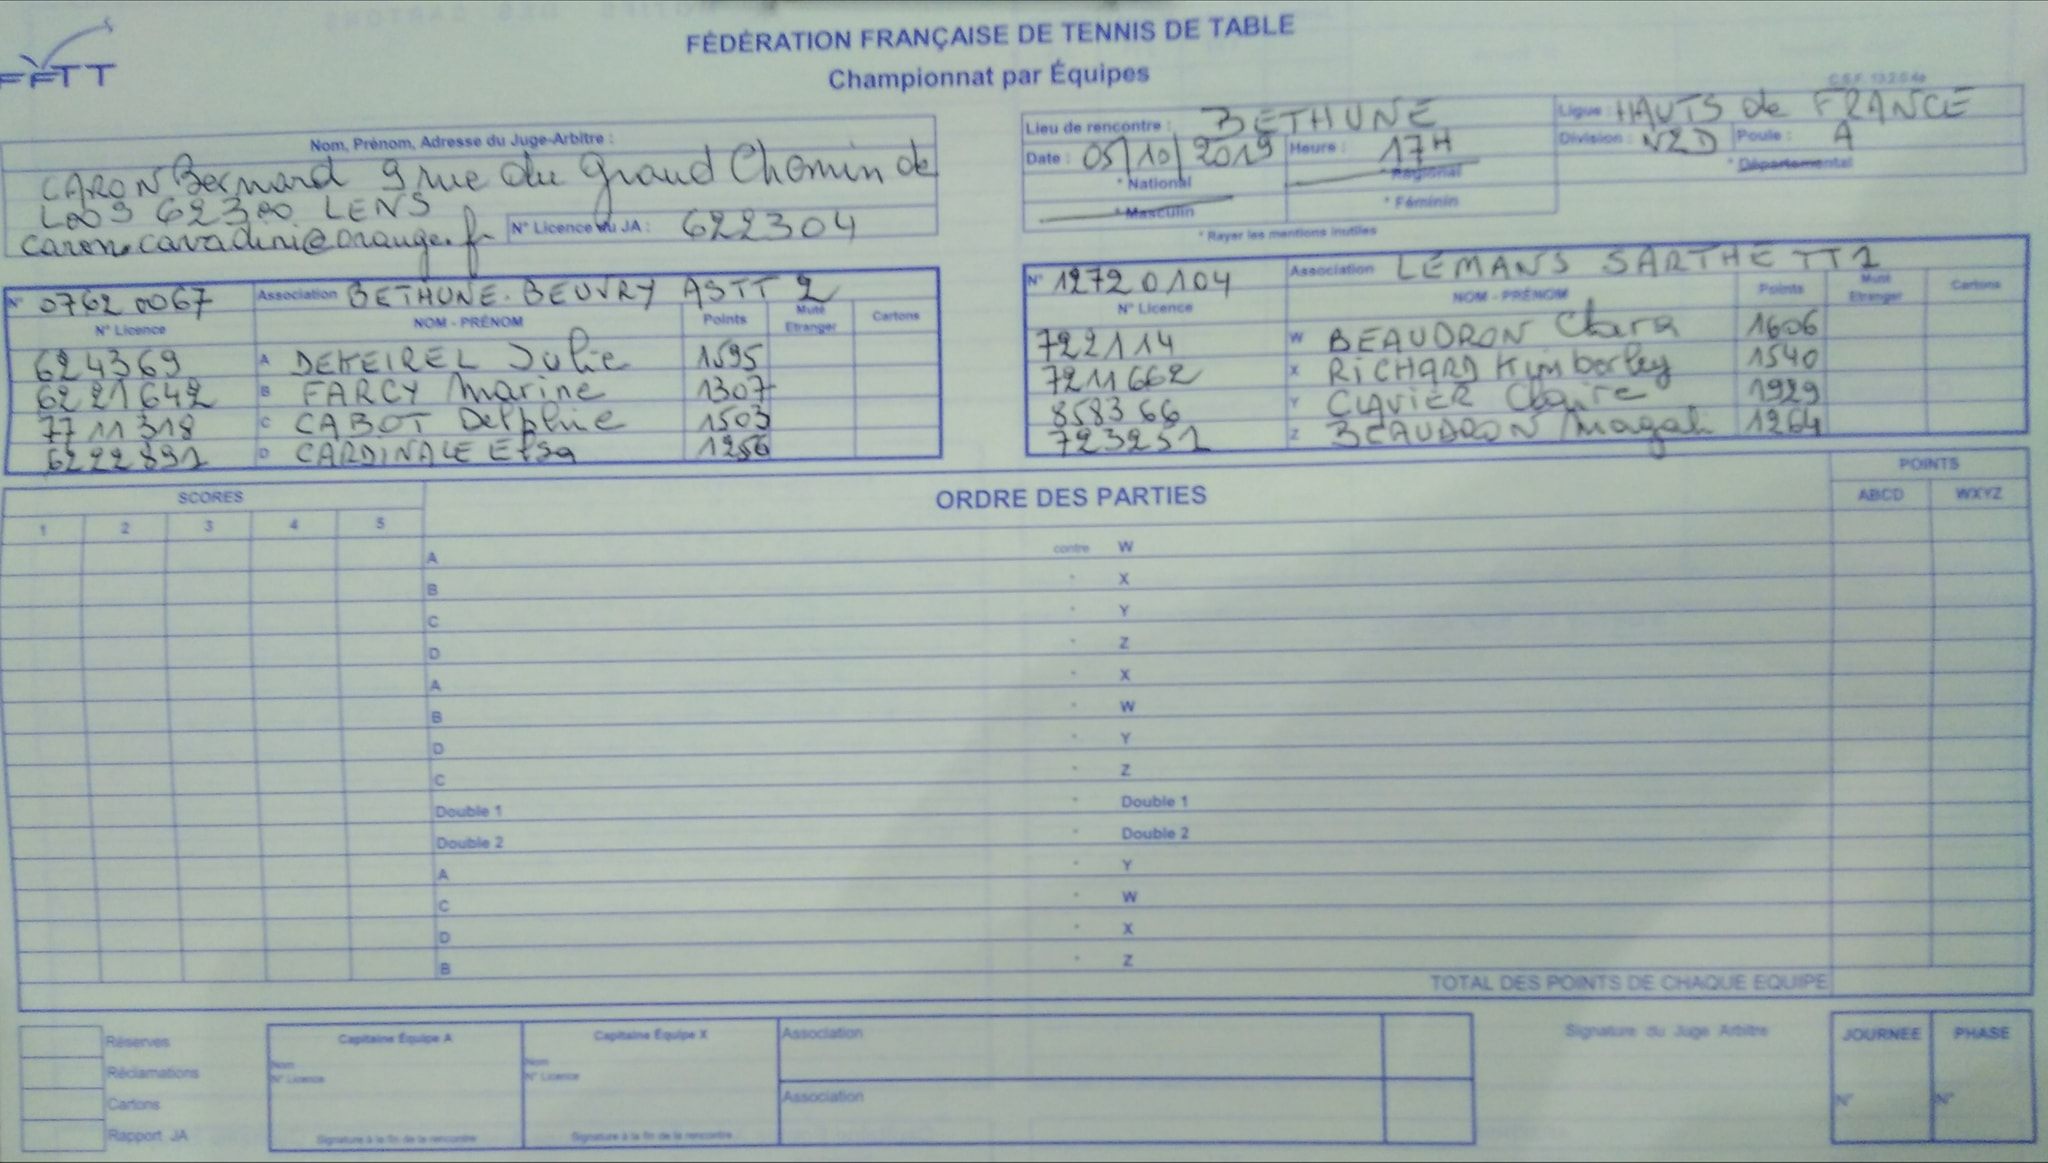 FFTT
FÉDÉRATION FRANÇAISE DE TENNIS DE TABLE
Championnat par Équipes
Nom, Prénom, Adresse du Juge-Arbitre :
CARON Bernard 9 rue du Grand Chemin de
LOOS 62300 LENS
N° Licence du JA : 622304
Lieu de rencontre : BETHUNE
Ligue : HAUTS de FRANCE
Date : 05/10/2019 Heure : 17H
Division : N2D Poule : A
* National * Régional * Départemental
* Masculin * Féminin
* Rayer les mentions inutiles
N° 07620067 Association BETHUNE-BEUVRY ASTT 2
N° Licence NOM - PRÉNOM Points Muté Etranger Cartons
624369 A DEKEIREL Julie 1595
6221642 B FARCY Marine 1307
7711318 C CABOT Delphine 1503
6222891 D CARDINALE Elsa 1256
N° 12720104 Association LEMANS SARTHE TT 1
N° Licence NOM - PRÉNOM Points Muté Etranger Cartons
722114 W BEAUDRON Clara 1606
7211662 X RICHARD Kimberley 1540
858366 Y CLAVIER Claire 1929
723251 Z BEAUDRON Magali 1264
SCORES ORDRE DES PARTIES POINTS
1 2 3 4 5 ABCD WXYZ
A contre W
B " X
C " Y
D " Z
A " X
B " W
D " Y
C " Z
Double 1 " Double 1
Double 2 " Double 2
A " Y
C " W
D " X
B " Z
TOTAL DES POINTS DE CHAQUE EQUIPE
Réserves
Réclamations
Cartons
Rapport JA
Capitaine Équipe A
Nom
N° Licence
Signature à la fin de la rencontre
Capitaine Équipe X
Nom
N° Licence
Signature à la fin de la rencontre
Association
Association
Signature du Juge Arbitre
JOURNEE PHASE
N° N°